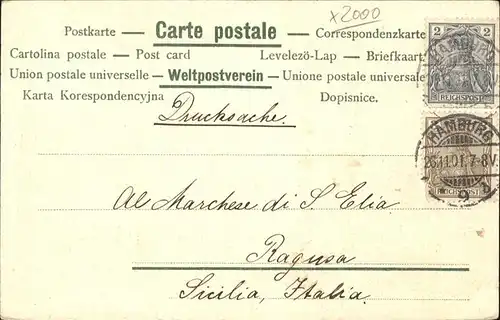 x2000
Postkarte — Carte postale — Correspondenzkarte
Cartolina postale — Post card Levelezö-Lap — Briefkaart
Union postale universelle — Weltpostverein — Unione postale universale
Karta Korespondencyjna Dopisnice.
Drucksache.
2 2
HAMBURG
REICHSPOST
HAMBURG
26.11.01.7-8V.
REICHSPOST
Al Marchese di S. Elia
Ragusa
Sicilia, Italia